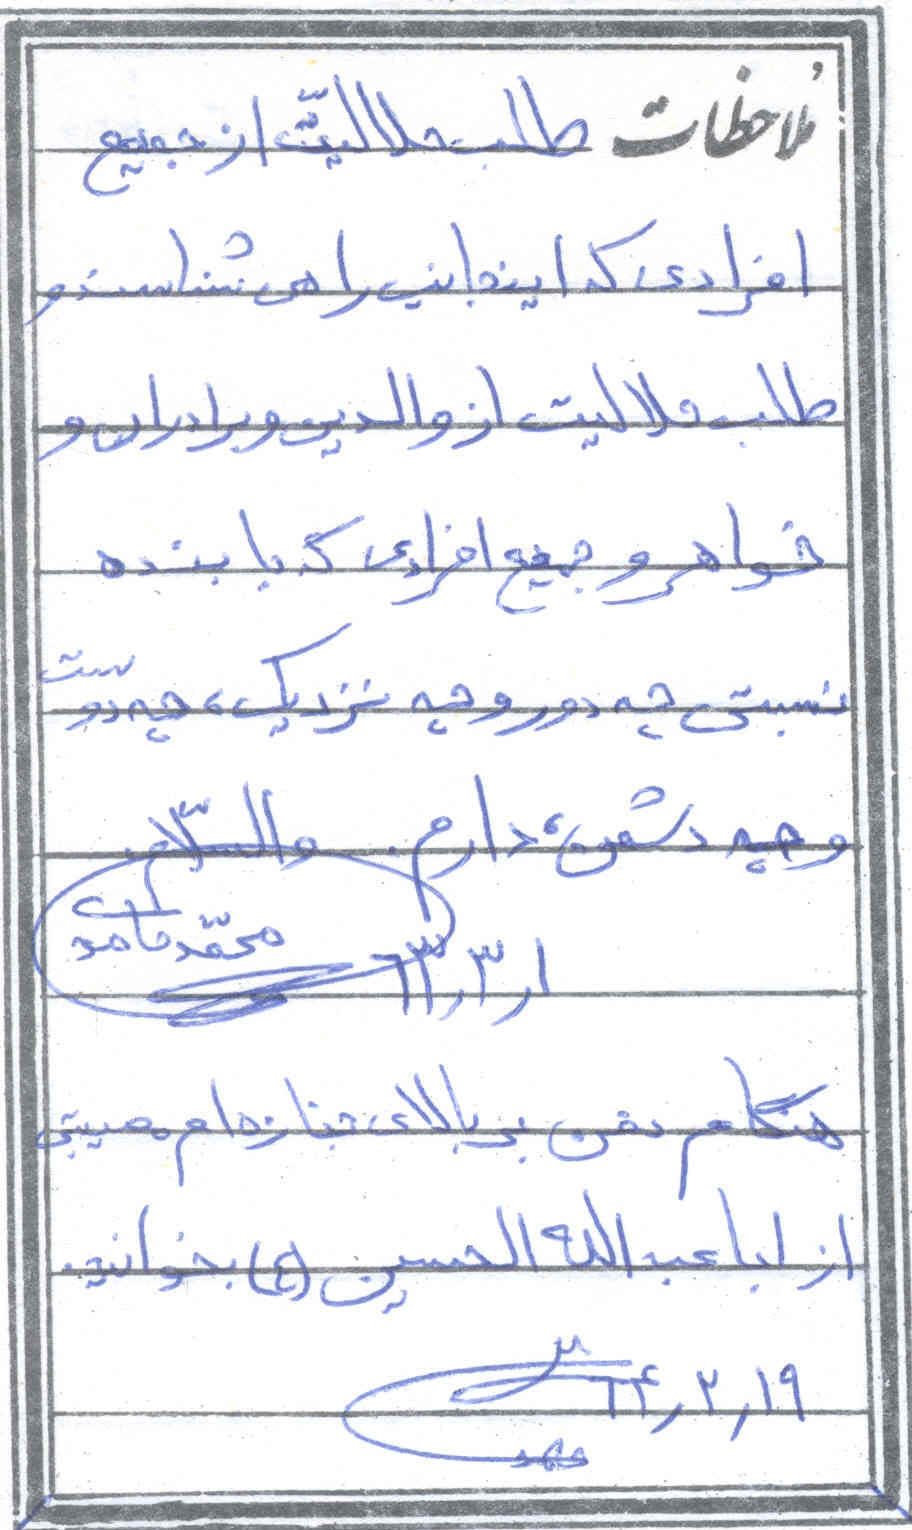 ملاحظات طلب حلالیّت از جمیع
افرادی که اینجانب را می شناسند و
طلب حلالیت از والدین و برادران و
خواهر و جمیع افرادی که با بنده
نسبتی چه دور و چه نزدیک، چه دوست
و چه دشمن، دارم. والسّلام
محمّد حامدی
۶۳٫۳٫۱
هنگام دفن بر بالای جنازه ام مصیبتی
از اباعبدالله الحسین (ع) بخوانید.
۶۴٫۲٫۱۹